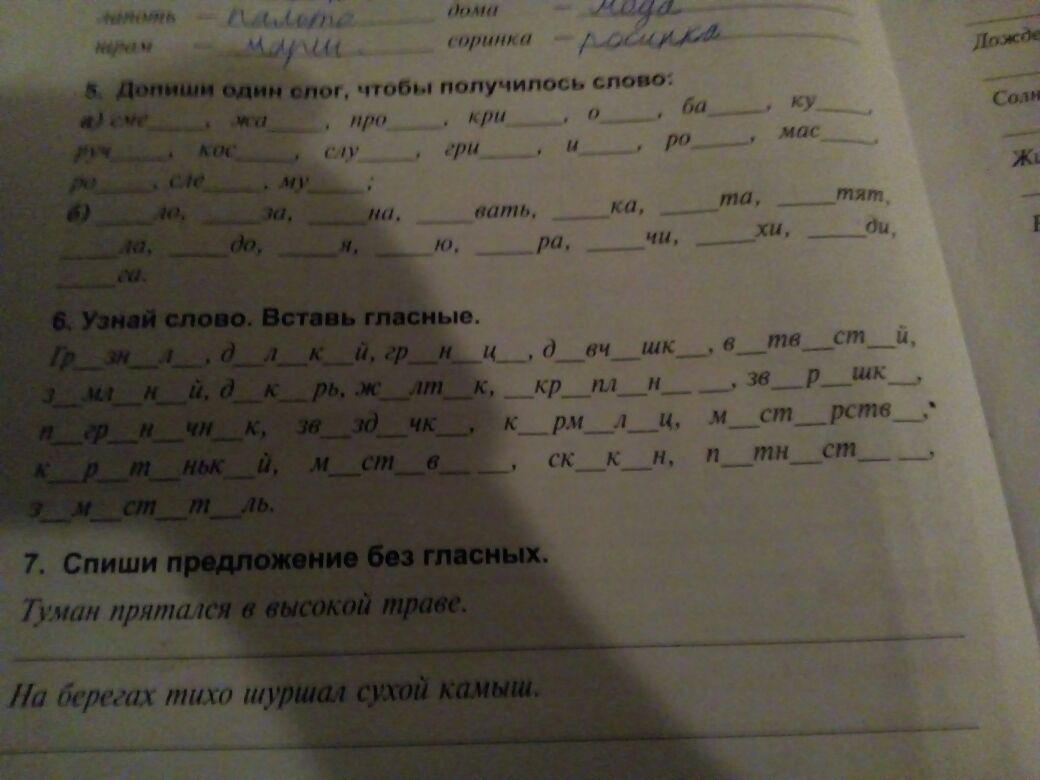 лапоть – пальто дома – мода
шрам – марш соринка – росинка
5. Допиши один слог, чтобы получилось слово:
а) сме____, жа____, про____, кри____, о____, ба____, ку____,
руч____, кос____, слу____, гри____, и____, ро____, мас____,
ро____, сле____, му____;
б) ____ло, ____за, ____на, ____вать, ____ка, ____та, ____тят,
____ла, ____до, ____я, ____ю, ____ра, ____чи, ____хи, ____ди,
____са.
6. Узнай слово. Вставь гласные.
Гр__зн__л__, д__л__к__й, гр__н__ц__, д__вч__шк__, в__тв__ст__й,
з__мл__н__й, д__к__рь, ж__лт__к, __кр__пл__н__ __, зв__р__шк__,
п__гр__н__чн__к, зв__зд__чк__, к__рм__л__ц, м__ст__рств__,
к__р__т__ньк__й, м__ст__в__ __, ск__к__н, п__тн__ст__ __,
з__м__ст__т__ль.
7. Спиши предложение без гласных.
Туман прятался в высокой траве.
На берегах тихо шуршал сухой камыш.
Дожде
Солн
Жи